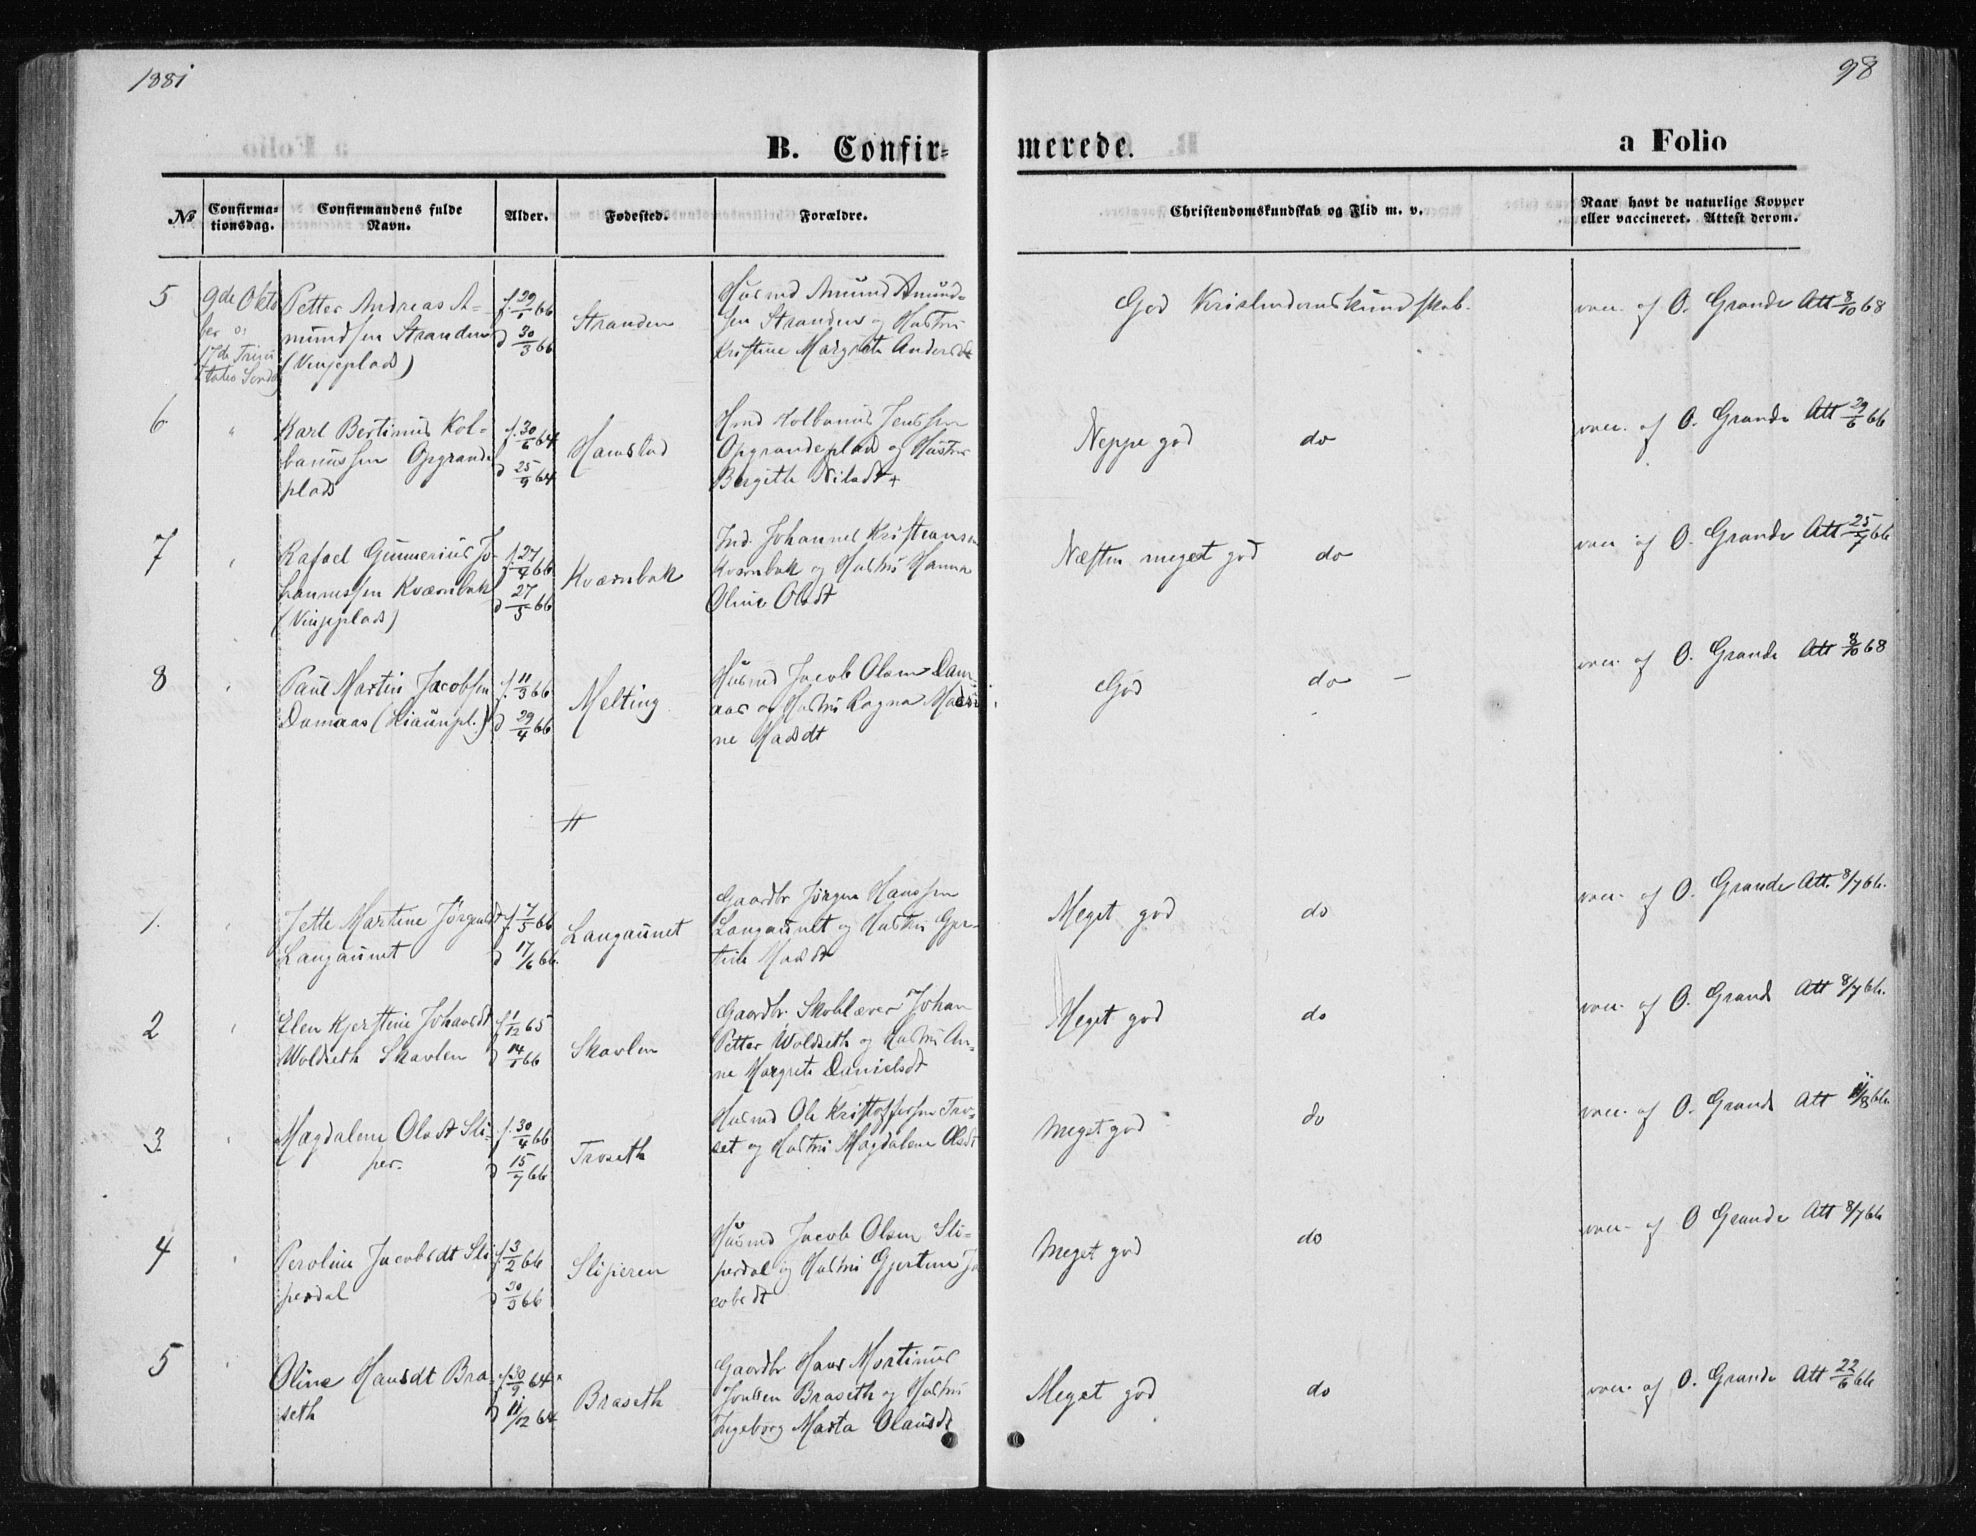 1881
98
B. Confir=
merede.
a Folio
No
Confirma-
tionsdag.
Confirmandens fulde
Navn.
Alder.
Fødested.
Forældre.
Christendomskundskab og Flid m. v.
Naar havt de naturlige Kopper
eller vaccineret. Attest derom.
5
9de Okto
ber
17de Trini
tatis Sondag
Petter Andreas A-
mundsen Stranden
(Vinjeplads)
f. 29/1 66
d 30/3 66
Stranden
Husmd Amund Amund-
sen Stranden og Hustru
Kristine Margrete Andersdt
God Kristendomskundskab.
vacc. af O. Grande Att 8/10 68
6
"
Karl Bertinus Kol-
banussen Opgrande
plads
f. 30/6 64
d 25/9 64
Hamstad
Hmd Kolbanus Jenssen
Opgrandeplads og Hustru
Birgitte Nilsdt +
Neppe god do
vacc. af O. Grande Att 29/6 66
7
"
Rafael Gunnerius Jo-
hannessen Kværnbak
(Vinjeplads)
f. 27/4 66
d 27/5 66
Kværnbak
Ind. Johannes Kristiansen
Kværnbak og Hustru Hanna
Oline Olsdt
Næsten meget god do
vacc af O. Grande Att 25/7 66
8
"
Paul Martin Jacobsen
Damaas (Liaunpl.)
f. 11/3 66
d 29/4 66
Melting
Husmd Jacob Olsen Dam-
aas og Hustru Ragna
ne Madsdt
God do -
vacc. af O. Grande Att 8/10 68
1.
"
Jette Martine Jörgensdt
Langaunet
f. 7/5 66
d 17/6 66.
Langaunet
Gaardbr Jörgen Hanssen
Langaunet og Hustru Gjer-
tine Madsdt
Meget god do
vacc. af O. Grande Att. 8/7 66.
2
"
Elen Kjerstine Johansdt
Woldseth Skavlen
f. 1/12 65
d 14/1 66
Skavlen
Gaardbr. Skolelærer Johan
Petter Woldseth og Hustru An-
ne Margrete Danielsdt
Meget god do
vacc. af O. Grande Att 8/7 66.
3
"
Magdalene Olsdt Sli-
per.
f. 30/4 66
d 15/7 66
Troseth
Husmd Ole Kristoffersen Tro-
set og Hustru Magdalene Olsdt
Meget god do
vacc. af O. Grande Att 11/8 66.
4
"
Peroline Jacobsdt Sli
perdal
f. 3/2 66
d 30/3 66
Sliperen
Husmd Jacob Olsen Sli-
perdal og Hustru Gjertine Ja
cobsdt
Meget god do
vacc. af O Grande Att 8/7 66
5
"
Oline Hansdt Bra-
seth
f. 30/9 64
d 11/12 64
Braseth
Gaardbr Hans Mortinus
Braseth og Hustru
Ingeborg Marta Olausdt
Meget god do
vacc. af O. Grande Att 22/6 66